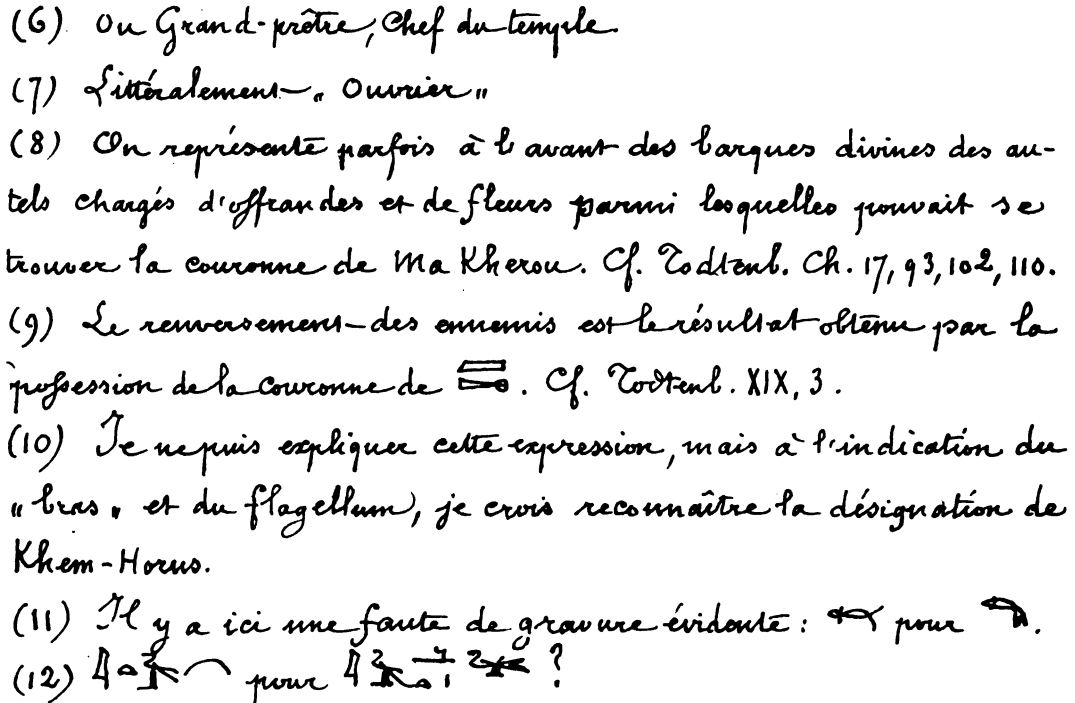 (6) Ou Grand-prêtre, Chef du temple.
(7) Littéralement „ Ouvrier „
(8) On représente parfois à l'avant des barques divines des au-
tels chargés d'offrandes et de fleurs parmi lesquelles pouvait se
trouver la couronne de Ma Kherou. Cf. Todtenb. Ch. 17, 93, 102, 110.
(9) Le renversement des ennemis est le résultat obtenu par la
possession de la couronne de . Cf. Todtenb. XIX, 3.
(10) Je ne puis expliquer cette expression, mais à l'indication du
„ bras „ et du flagellum, je crois reconnaître la désignation de
Khem-Horus.
(11) Il y a ici une faute de gravure évidente : pour .
(12) pour ?